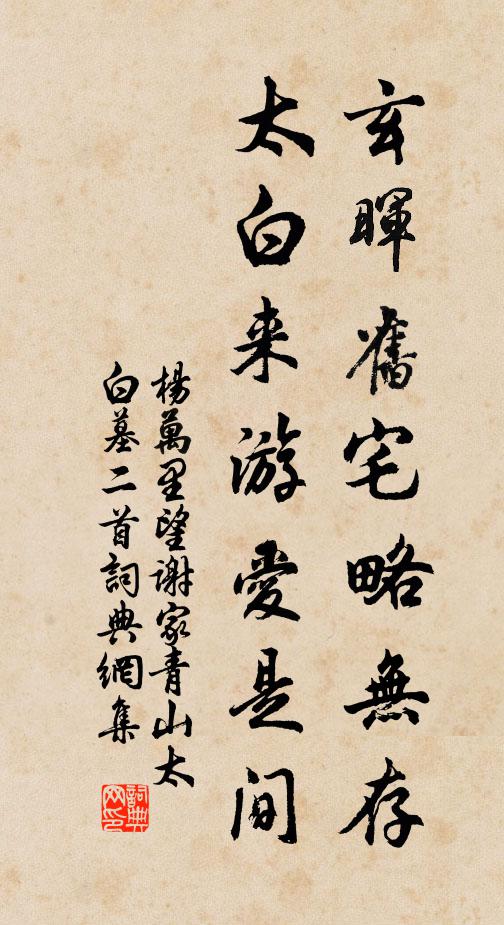 玄暉舊宅略無存
太白来游愛是间
楊萬里望謝家青山太
白墓二首詞典網集
詞典网印